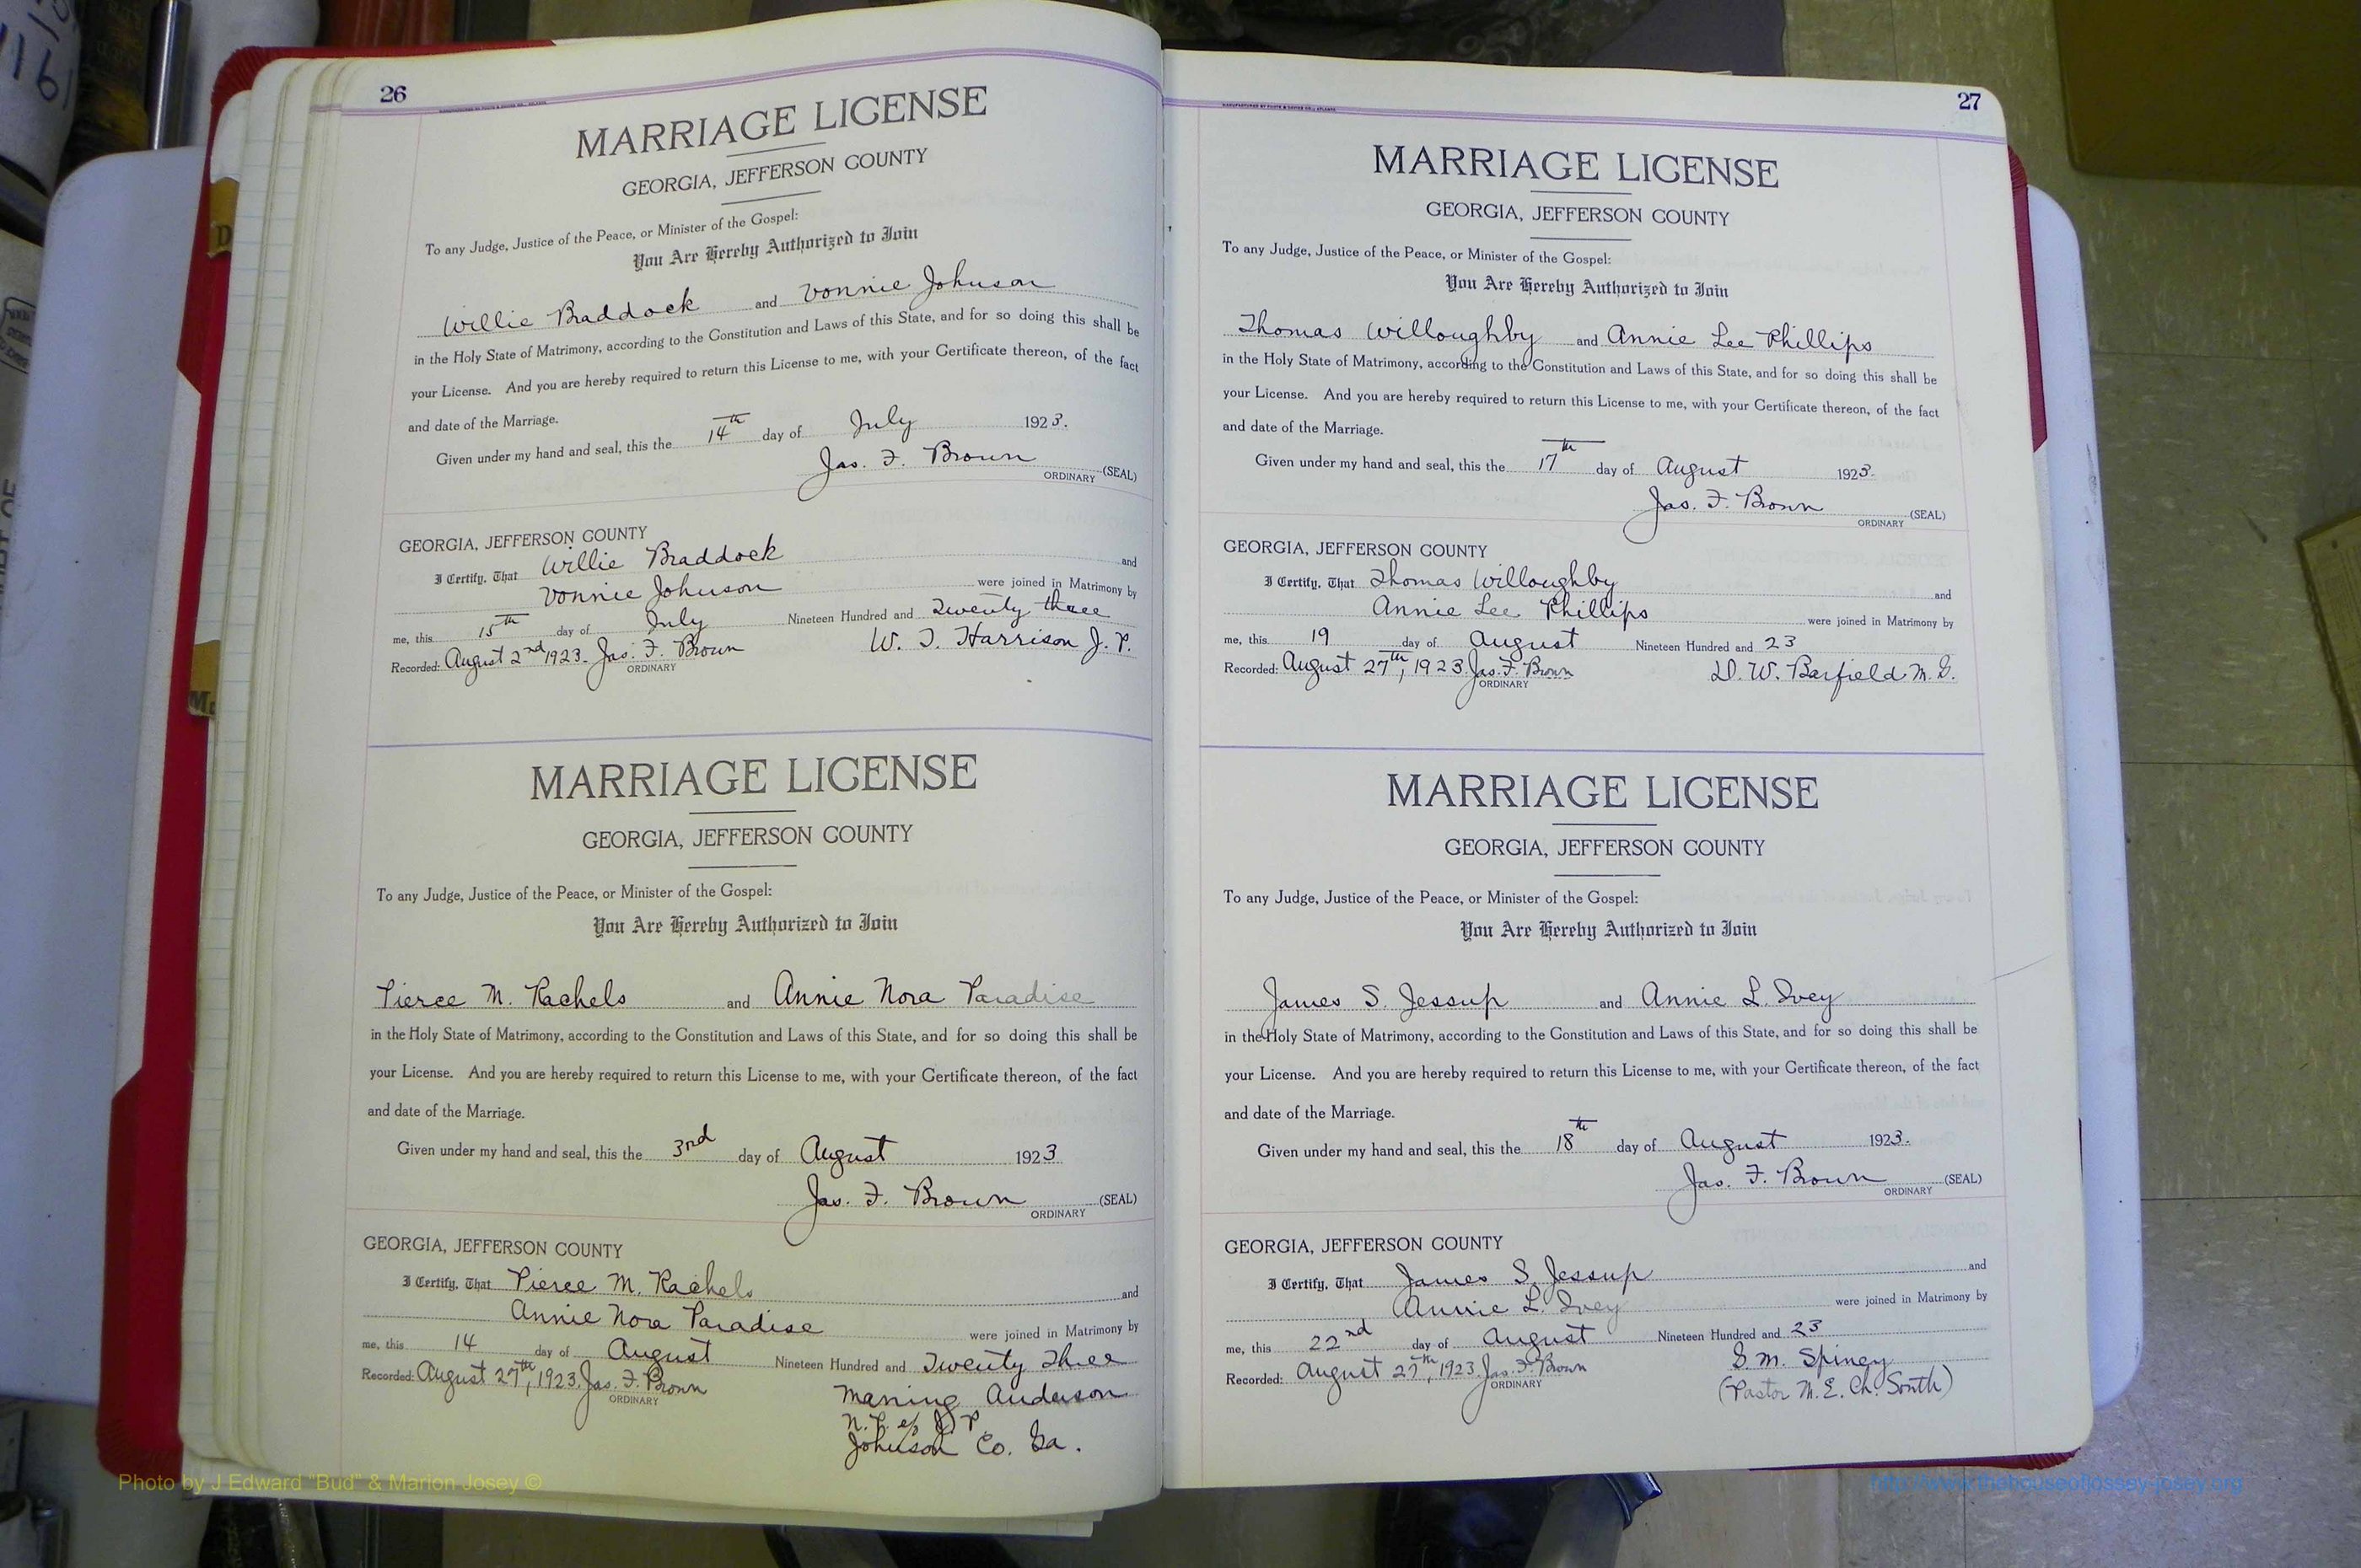 26
MARRIAGE LICENSE
GEORGIA, JEFFERSON COUNTY
To any Judge, Justice of the Peace, or Minister of the Gospel:
You Are Hereby Authorized to Join
Willie Braddock and Vonnie Johnson
in the Holy State of Matrimony, according to the Constitution and Laws of this State, and for so doing this shall be
your License. And you are hereby required to return this License to me, with your Certificate thereon, of the fact
and date of the Marriage.
Given under my hand and seal, this the 14th day of July 1923.
Jas. F. Brown (SEAL)
ORDINARY
GEORGIA, JEFFERSON COUNTY
I Certify, That Willie Braddock and
Vonnie Johnson were joined in Matrimony by
me, this 15th day of July Nineteen Hundred and Twenty three
Recorded: August 2nd 1923. Jas. F. Brown W. T. Harrison J. P.
ORDINARY
MARRIAGE LICENSE
GEORGIA, JEFFERSON COUNTY
To any Judge, Justice of the Peace, or Minister of the Gospel:
You Are Hereby Authorized to Join
Pierce M. Rachels and Annie Nora Paradise
in the Holy State of Matrimony, according to the Constitution and Laws of this State, and for so doing this shall be
your License. And you are hereby required to return this License to me, with your Certificate thereon, of the fact
and date of the Marriage.
Given under my hand and seal, this the 3rd day of August 1923
Jas. F. Brown (SEAL)
ORDINARY
GEORGIA, JEFFERSON COUNTY
I Certify, That Pierce M. Rachels and
Annie Nora Paradise were joined in Matrimony by
me, this 14 day of August Nineteen Hundred and Twenty Three
Recorded: August 27th, 1923. Jas. F. Brown Manning Anderson
ORDINARY
N. P. J. P.
Johnson Co. Ga.
27
MARRIAGE LICENSE
GEORGIA, JEFFERSON COUNTY
To any Judge, Justice of the Peace, or Minister of the Gospel:
You Are Hereby Authorized to Join
Thomas Willoughby and Annie Lee Phillips
in the Holy State of Matrimony, according to the Constitution and Laws of this State, and for so doing this shall be
your License. And you are hereby required to return this License to me, with your Certificate thereon, of the fact
and date of the Marriage.
Given under my hand and seal, this the 17th day of August 1923.
Jas. F. Brown (SEAL)
ORDINARY
GEORGIA, JEFFERSON COUNTY
I Certify, That Thomas Willoughby and
Annie Lee Phillips were joined in Matrimony by
me, this 19 day of August Nineteen Hundred and 23
Recorded: August 27th, 1923. Jas. F. Brown D. W. Barfield M. G.
ORDINARY
MARRIAGE LICENSE
GEORGIA, JEFFERSON COUNTY
To any Judge, Justice of the Peace, or Minister of the Gospel:
You Are Hereby Authorized to Join
James S. Jessup and Annie L. Ivey
in the Holy State of Matrimony, according to the Constitution and Laws of this State, and for so doing this shall be
your License. And you are hereby required to return this License to me, with your Certificate thereon, of the fact
and date of the Marriage.
Given under my hand and seal, this the 18th day of August 1923.
Jas. F. Brown (SEAL)
ORDINARY
GEORGIA, JEFFERSON COUNTY
I Certify, That James S. Jessup and
Annie L. Ivey were joined in Matrimony by
me, this 22nd day of August Nineteen Hundred and 23
Recorded: August 27th, 1923. Jas. F. Brown S. M. Spiney
ORDINARY (Pastor M. E. Ch. South)
Photo by J Edward "Bud" & Marion Josey ©
http://www.thehouseofjossey-josey.org